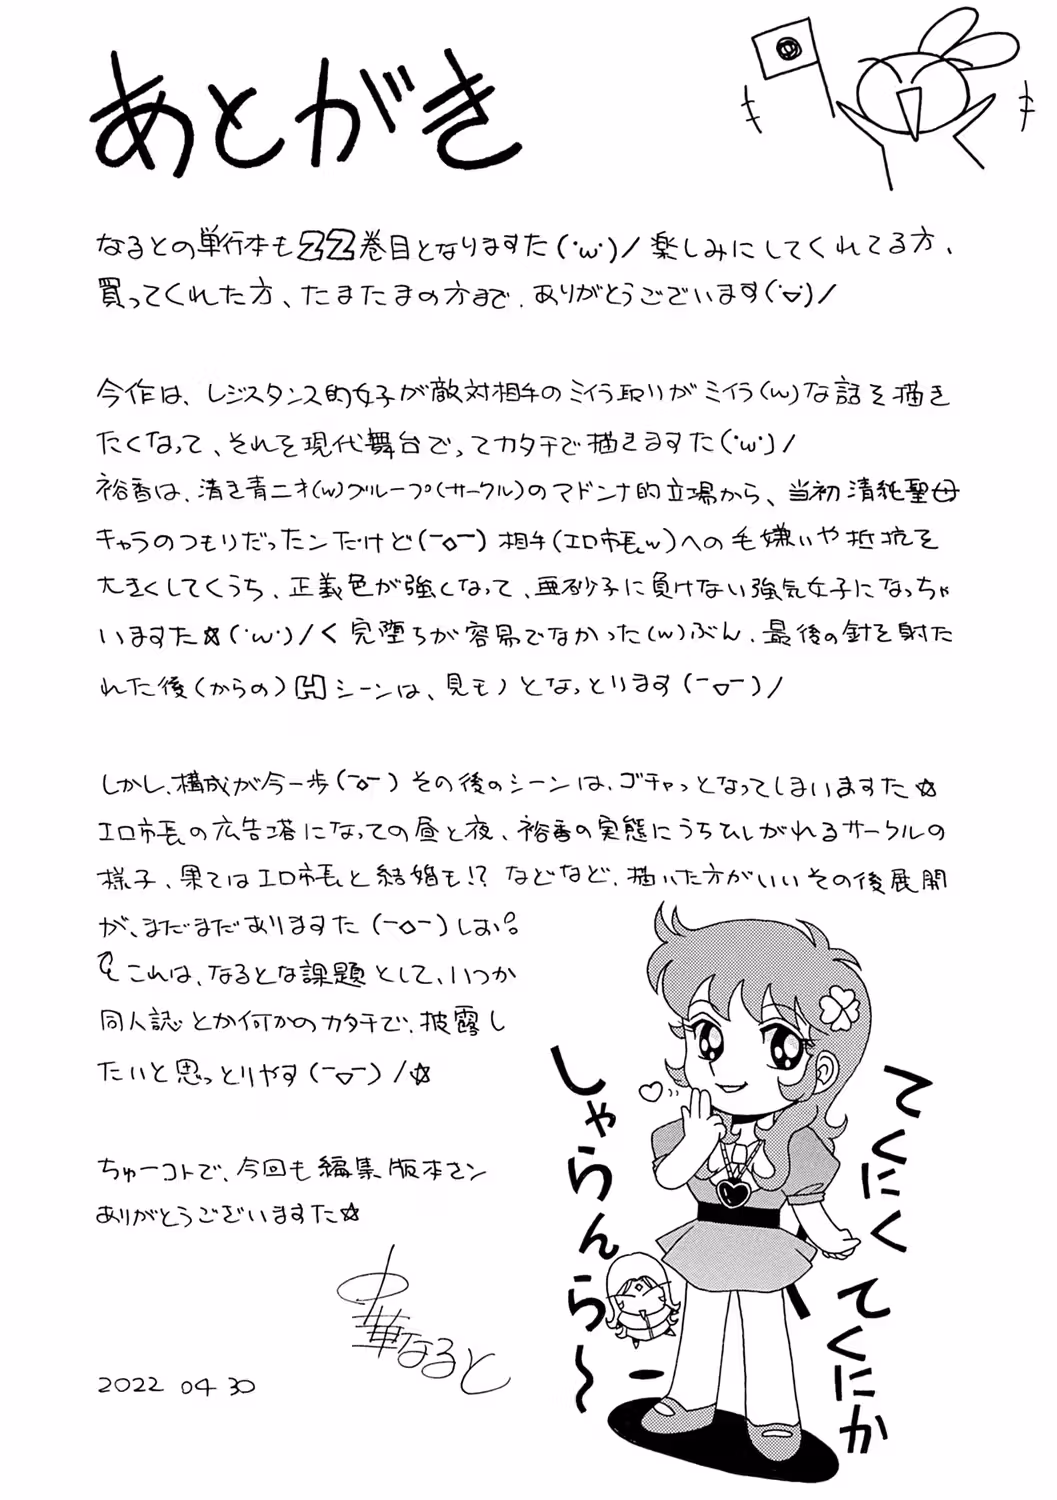 あとがき
なるとの単行本も22巻目となりますた(･ω･)/ 楽しみにしてくれてる方、
買ってくれた方、たまたまの方まで、ありがとうございます(･▽･)/
今作は、レジスタンス的女子が敵対相手のミイラ取りがミイラ(w)な話を描き
たくなって、それを現代舞台でってカタチで描きますた(･ω･)/
裕香は、清き青二才(w)グループ(サークル)のマドンナ的立場から、当初清純聖母
キャラのつもりだったンだけど(￣◇￣) 相手(エロ市長w)への毛嫌いや抵抗を
大きくしてくうち、正義色が強くなって、亜砂子に負けない強気女子になっちゃ
いますた☆(･ω･)/く 完堕ちが容易でなかった(w)ぶん、最後の針を射た
れた後(からの)Hシーンは、見モノとなっとります(￣▽￣)/
しかし、構成が今一歩(￣◇￣) その後のシーンは、ゴチャっとなってしまいますた☆
エロ市長の広告塔になっての昼と夜、裕香の実態にうちひしがれるサークルの
様子、果てはエロ市長と結婚も!? などなど、描いた方がいいその後展開
が、まだまだありますた(￣◇￣)しおい。
これは、なるとな課題として、いつか
同人誌とか何かのカタチで、披露し
たいと思っとりやす(￣▽￣)/☆
ちゅーコトで、今回も編集版本サン
ありがとうございますた☆
中華なると
2022 04 30
てくにく てくにか
しゃらんら〜